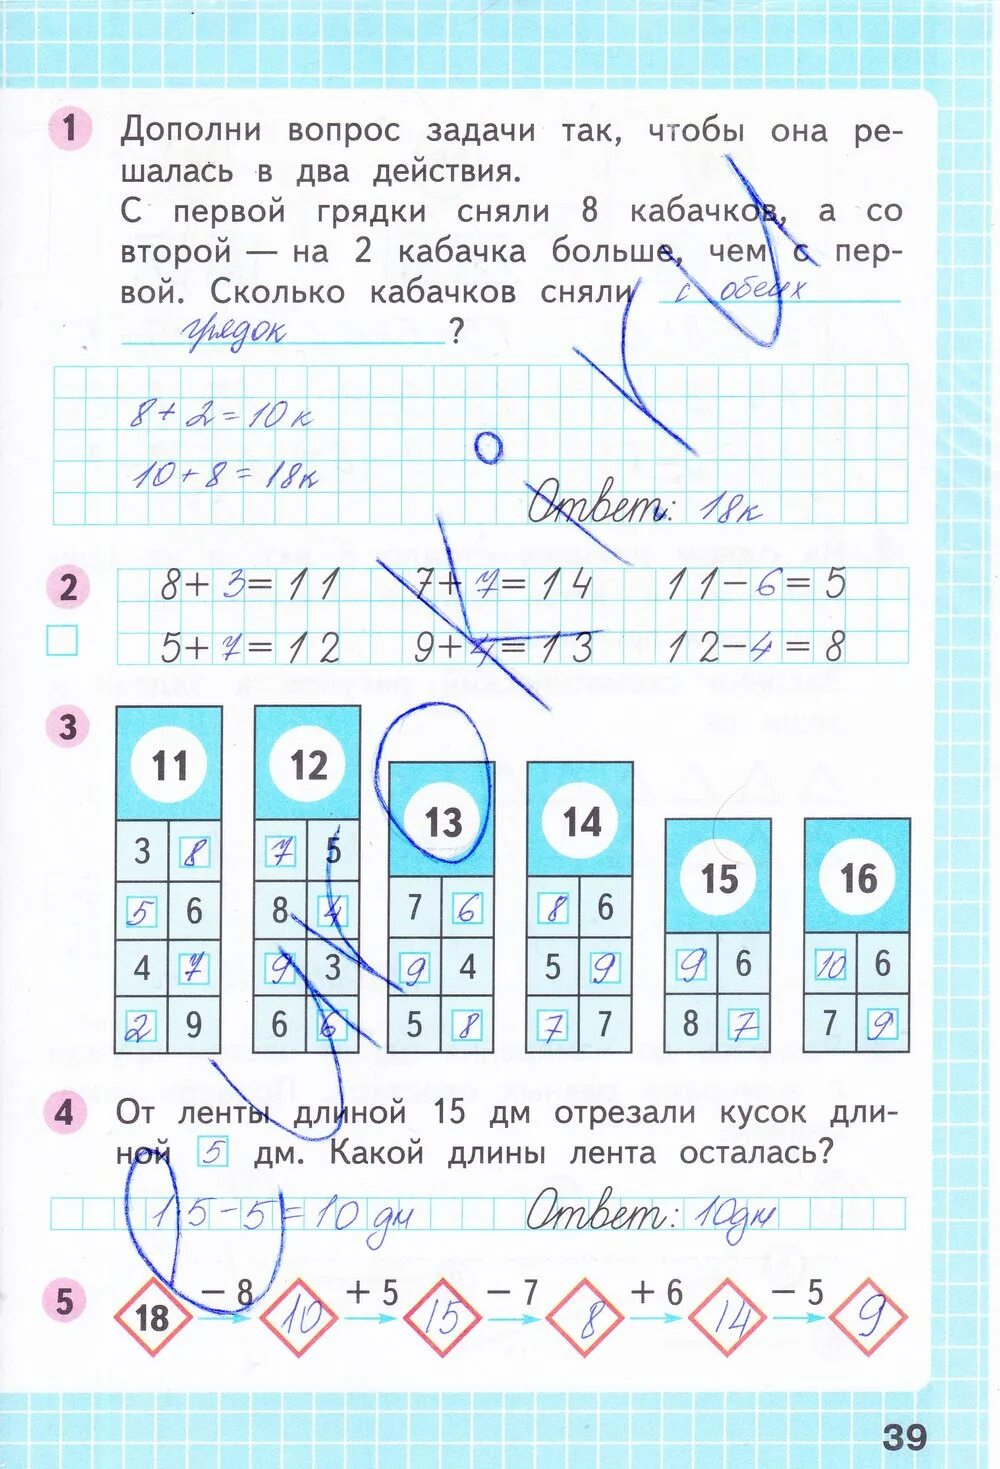 1 Дополни вопрос задачи так, чтобы она ре-
шалась в два действия.
С первой грядки сняли 8 кабачков, а со
второй — на 2 кабачка больше, чем с пер-
вой. Сколько кабачков сняли с обеих
грядок ?
8+2=10к
10+8=18к
Ответ: 18к
2 8+3=11 7+7=14 11-6=5
5+7=12 9+4=13 12-4=8
3
11 12 13 14 15 16
3 8 7 5
5 6 8 4 7 6 8 6
4 7 9 3 9 4 5 9 9 6 10 6
2 9 6 6 5 8 7 7 8 7 7 9
4 От ленты длиной 15 дм отрезали кусок дли-
ной 5 дм. Какой длины лента осталась?
15-5=10дм Ответ: 10дм
5 18 - 8 10 + 5 15 - 7 8 + 6 14 - 5 9
39